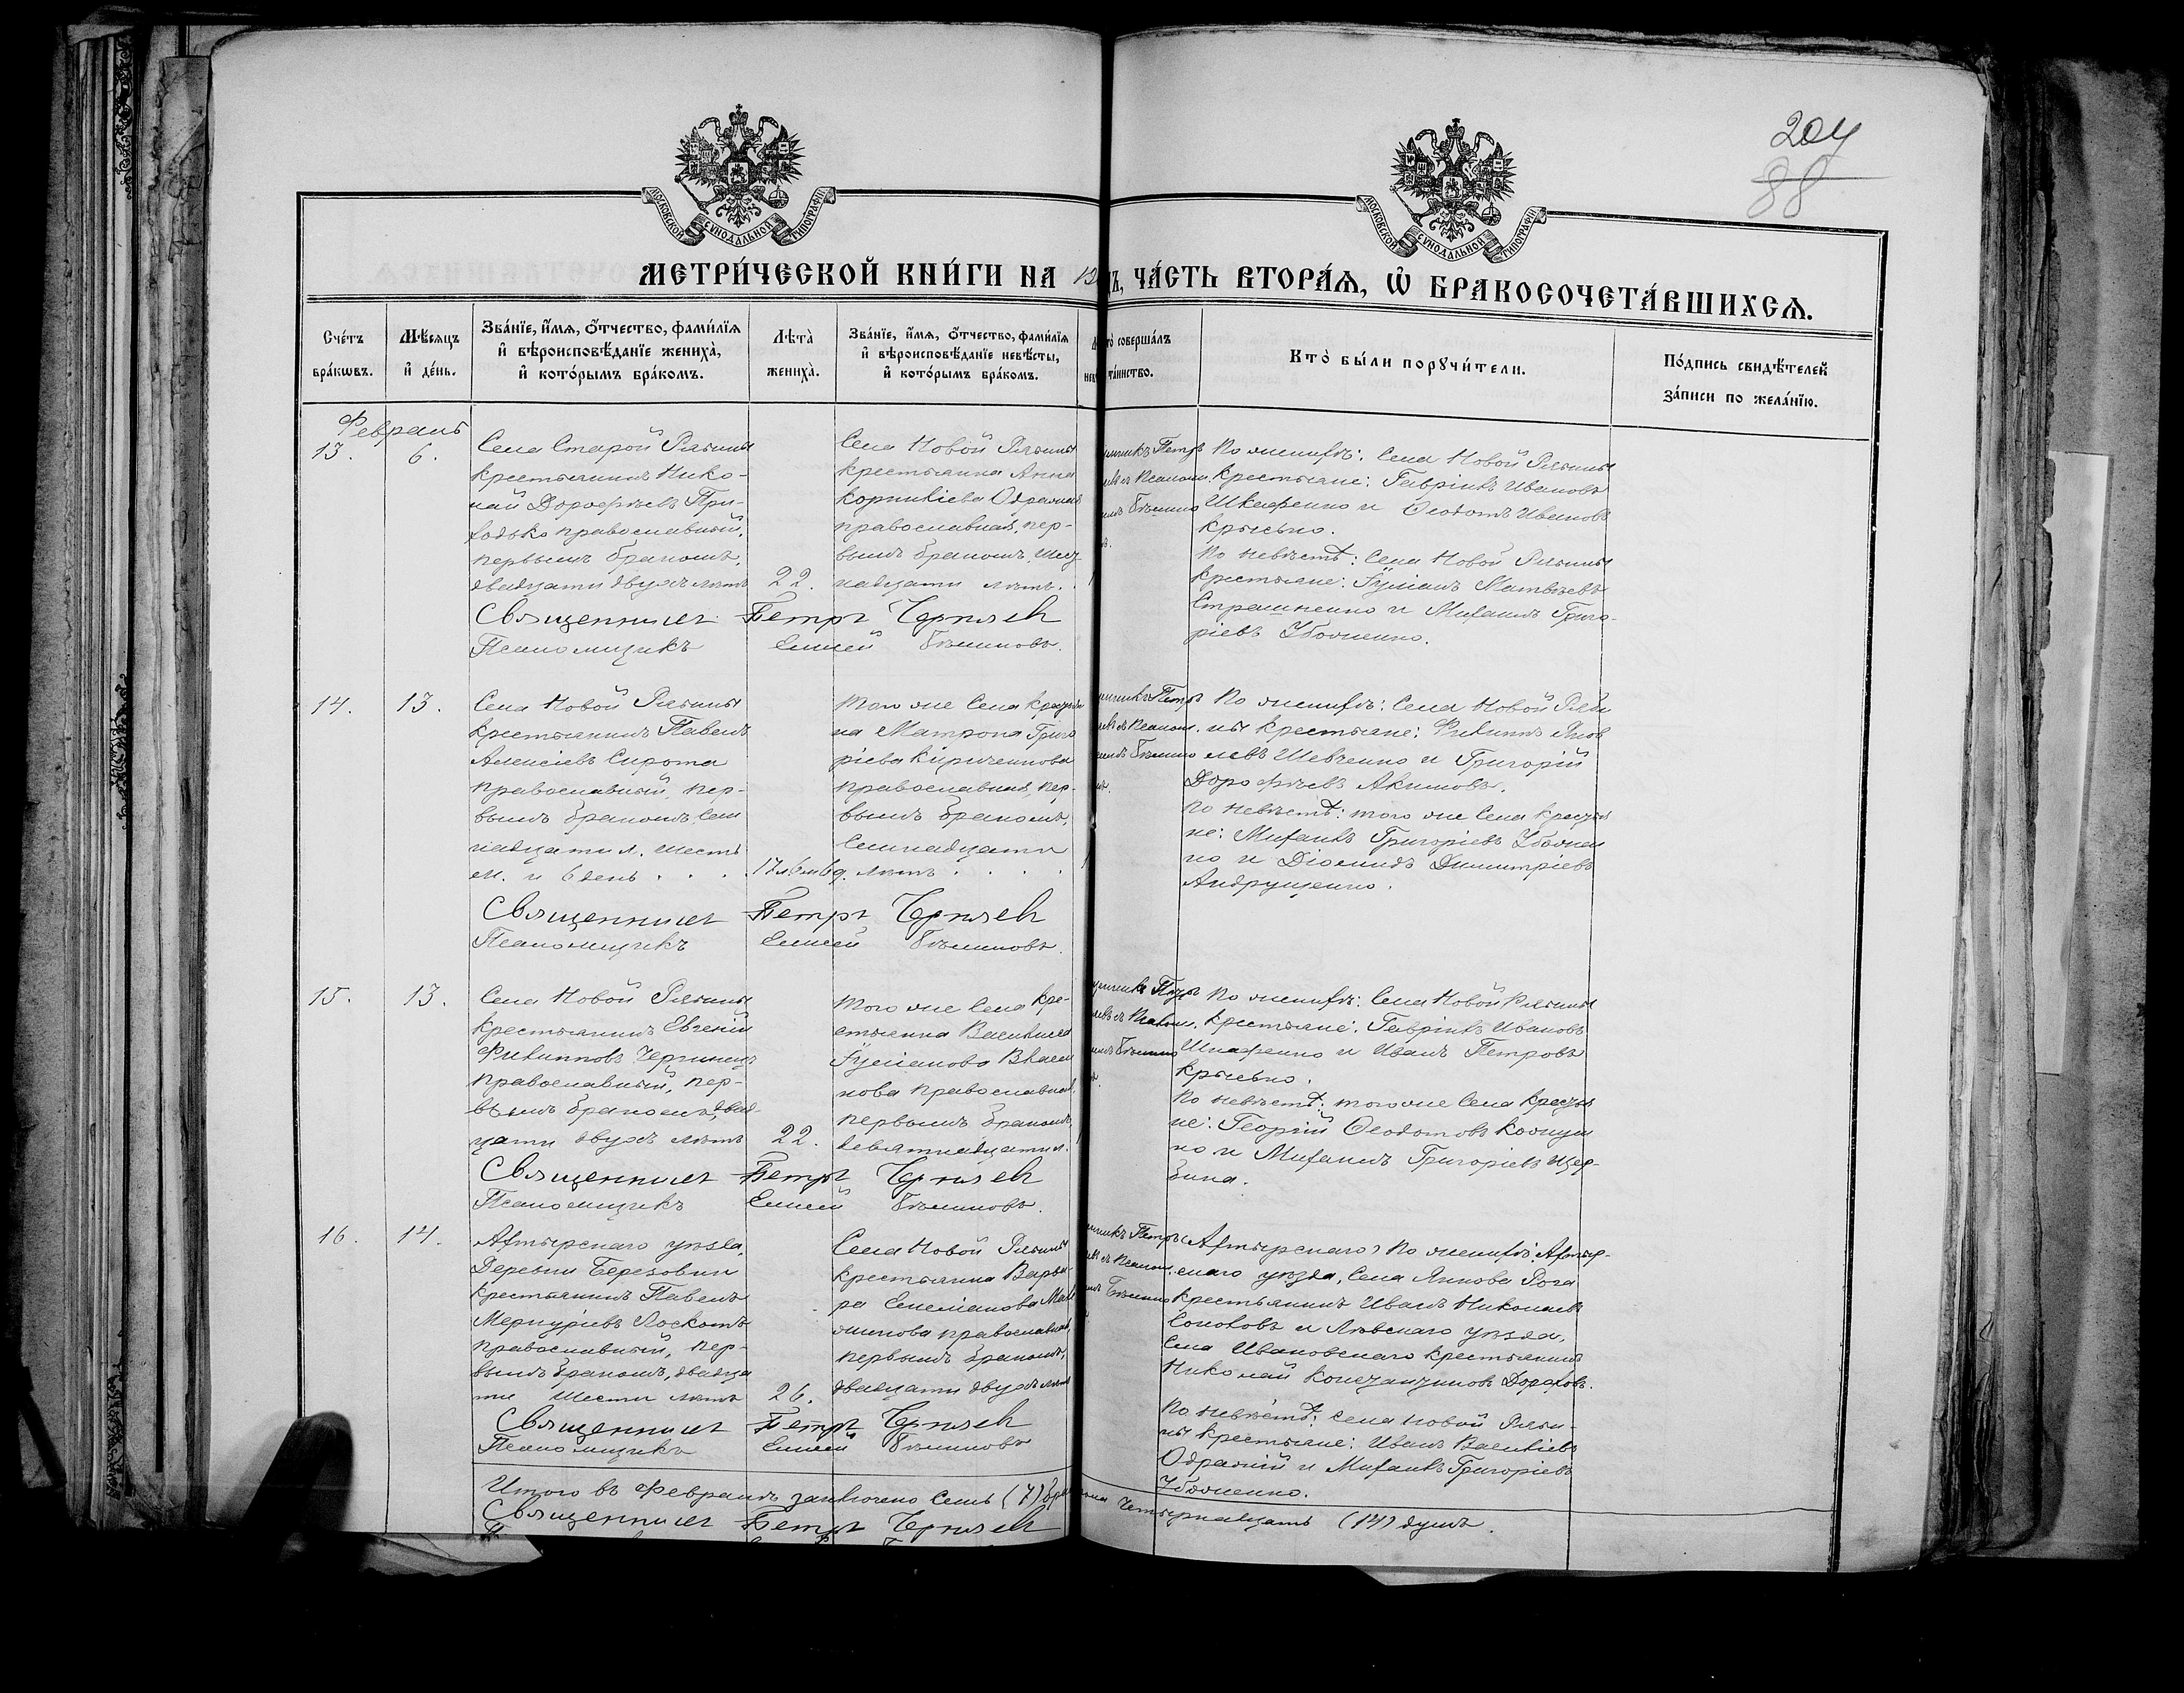 204
88
МОСКОВСКОЙ СѴНОДАЛЬНОЙ ТИПОГРАФІИ
МОСКОВСКОЙ СѴНОДАЛЬНОЙ ТИПОГРАФІИ
МЕТРИ́ЧЕСКОЙ КНИ́ГИ НА
ЧА́СТЬ ВТОРА́Ѧ, Ѽ БРАКОСОЧЕТА́ВШИХСѦ.
Сче́тъ бра́кѡвъ.
Мѣ́сяцъ и҆ де́нь.
Зва́нїе, и҆́мѧ, ѻ҆́тчество, фами́лїѧ и҆ вѣроисповѣ́данїе жениха̀, и҆ кото́рымъ бра́комъ.
Лѣта̀ жениха̀.
Зва́нїе, и҆́мѧ, ѻ҆́тчество, фами́лїѧ и҆ вѣроисповѣ́данїе невѣ́сты, и҆ кото́рымъ бра́комъ.
то̀ соверша́лъ та́инство.
Кто̀ бы́ли порꙋчи́тели.
По́дпись свидѣ́телей за́писи по жела́нїю.
Февраль
13.
6.
Села Старой Рябины
крестьянинъ Нико-
лай Дорофѣевъ При-
ходько православный,
первымъ бракомъ,
двадцати двухъ лѣтъ
22.
Села Новой Рябины
крестьянка Анна
Корнилiева Одражая
православная, пер-
вымъ бракомъ, шест
надцати лѣтъ.
По женихѣ: Села Новой Рябины
крестьяне: Гаврiилъ Ивановъ
Шкафенко и Ѳеодотъ Ивановъ
Крысько.
По невѣстѣ: Села Новой Рябины
крестьяне: Іулiанъ Матвѣевъ
Страшненко и Михаилъ Григо-
рiевъ Убоженко.
Священникъ Петръ Черняевъ
Псаломщикъ Елисей
14.
13.
Села Новой Рябины
крестьянинъ Павелъ
Алексiевъ Сирота
православный, пер-
вымъ бракомъ, сем
надцати л. шесть
м. и 6 день
17 л 6 м 6 д.
Того же Села крестьян
ка Матрона Григо
рiева Кириченкова
православная, пер-
вымъ бракомъ,
семнадцати
лѣтъ
По женихѣ: Села Новой Ряби
ны крестьяне: Филиппъ Яков
левъ Шевченко и Григорiй
Дорофѣевъ Акимовъ.
По невѣстѣ: того же Села крестья
не: Михаилъ Григорiевъ Убожен
ко и Дiомидъ Димитрiевъ
Андрущенко.
Священникъ Петръ Черняевъ
Псаломщикъ Елисей
15.
13.
Села Новой Рябины
крестьянинъ Евгенiй
Филипповъ Чернинец
православный, пер-
вымъ бракомъ, двад-
цати двухъ лѣтъ
22.
Того же Села кре-
стьянка Василиса
Іулiанова Власен
кова православная
первымъ бракомъ,
девятнадцати л.
По женихѣ: Села Новой Рябины
крестьяне: Гаврiилъ Ивановъ
Шкафенко и Иванъ Петровъ
Крысько.
По невѣстѣ: того же Села крестья
не: Георгiй Ѳеодотовъ
ко и Михаилъ Григорiевъ Щер-
бина.
Священникъ Петръ Черняевъ
Псаломщикъ Елисей
16.
14.
Ахтырскаго уѣзда,
Деревни Березовки
крестьянинъ Павелъ
Меркурiевъ Лоскотъ
православный, пер-
вымъ бракомъ, двадца
ти шести лѣтъ
26.
Села Новой Рябины
крестьянка Варва-
ра Емелiанова
православная,
первымъ бракомъ,
двадцати двухъ лѣтъ
(Ахтырскаго) По женихѣ: Ахтыр-
скаго уѣзда, Села Янкова Рога
крестьянинъ Иванъ Николаевъ
Соколовъ и Льговскаго уѣзда,
Села Ивановскаго крестьянинъ
Николай Константиновъ
По невѣстѣ: Села Новой Ряби-
ны крестьяне: Иванъ Василiевъ
Одражiй и Михаилъ Григорiевъ
Убоженко.
Священникъ Петръ Черняевъ
Псаломщикъ Елисей
Итого въ Февралѣ заключено семь (7)
четырнадцать (14) душъ.
Священникъ Петръ Черняевъ